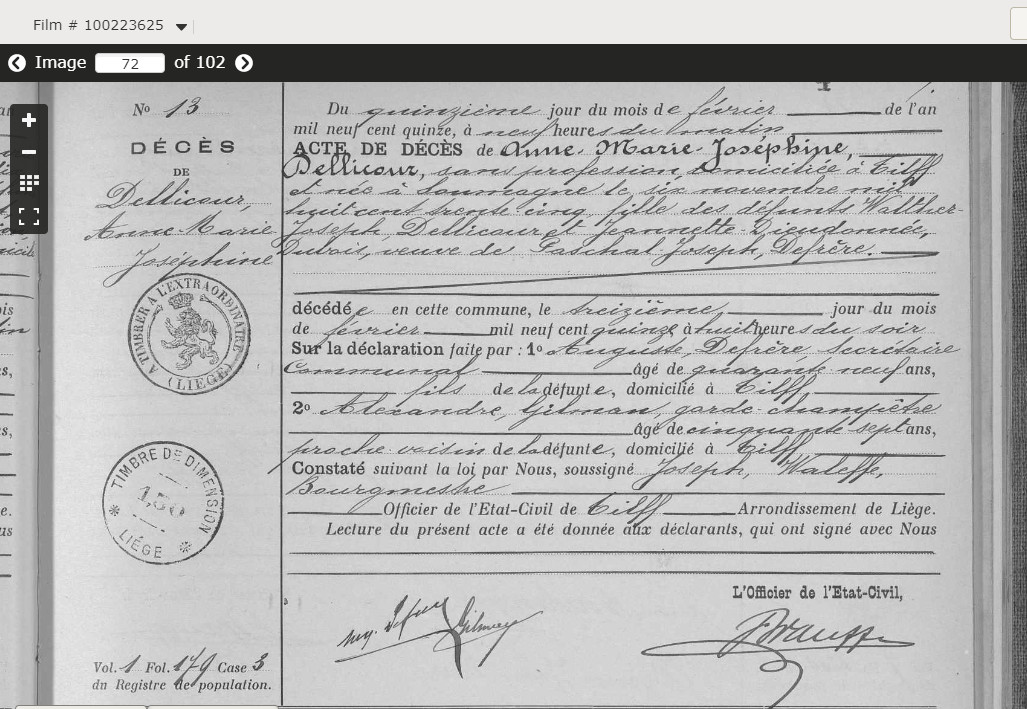 Film # 100223625
Image 72 of 102
Nº 13
DÉCÈS
DE
Dellicour,
Anne-Marie
Joséphine
TIMBRER À L'EXTRAORDINAIRE (LIÈGE)
TIMBRE DE DIMENSION
1,50
* LIÉGE *
Vol. 1 Fol. 179 Case 3
du Registre de population.
Du quinzième jour du mois de février de l'an
mil neuf cent quinze, à neuf heures du matin
ACTE DE DÉCÈS de Anne-Marie-Joséphine,
Dellicour, sans profession, domiciliée à Tilff
et née à Soumagne le six novembre mil
huit cent trente cinq fille des défunts Walther-
Joseph, Dellicour et Jeannette-Dieudonnée,
Dubois, veuve de Paschal Joseph, Defrère.
décédée en cette commune, le treizième, jour du mois
de février mil neuf cent quinze à huit heures du soir
Sur la déclaration faite par : 1º Auguste, Defrère, secrétaire
Communal âgé de quarante neuf ans,
fils de la défunte, domicilié à Tilff,
2º Alexandre, Gilman, garde-champêtre
âgé de cinquante sept ans,
proche voisin de la défunte, domicilié à Tilff
Constaté suivant la loi par Nous, soussigné Joseph, Waleffe,
Bourgmestre
Officier de l'Etat-Civil de Tilff Arrondissement de Liége.
Lecture du présent acte a été donnée aux déclarants, qui ont signé avec Nous
L'Officier de l'Etat-Civil,